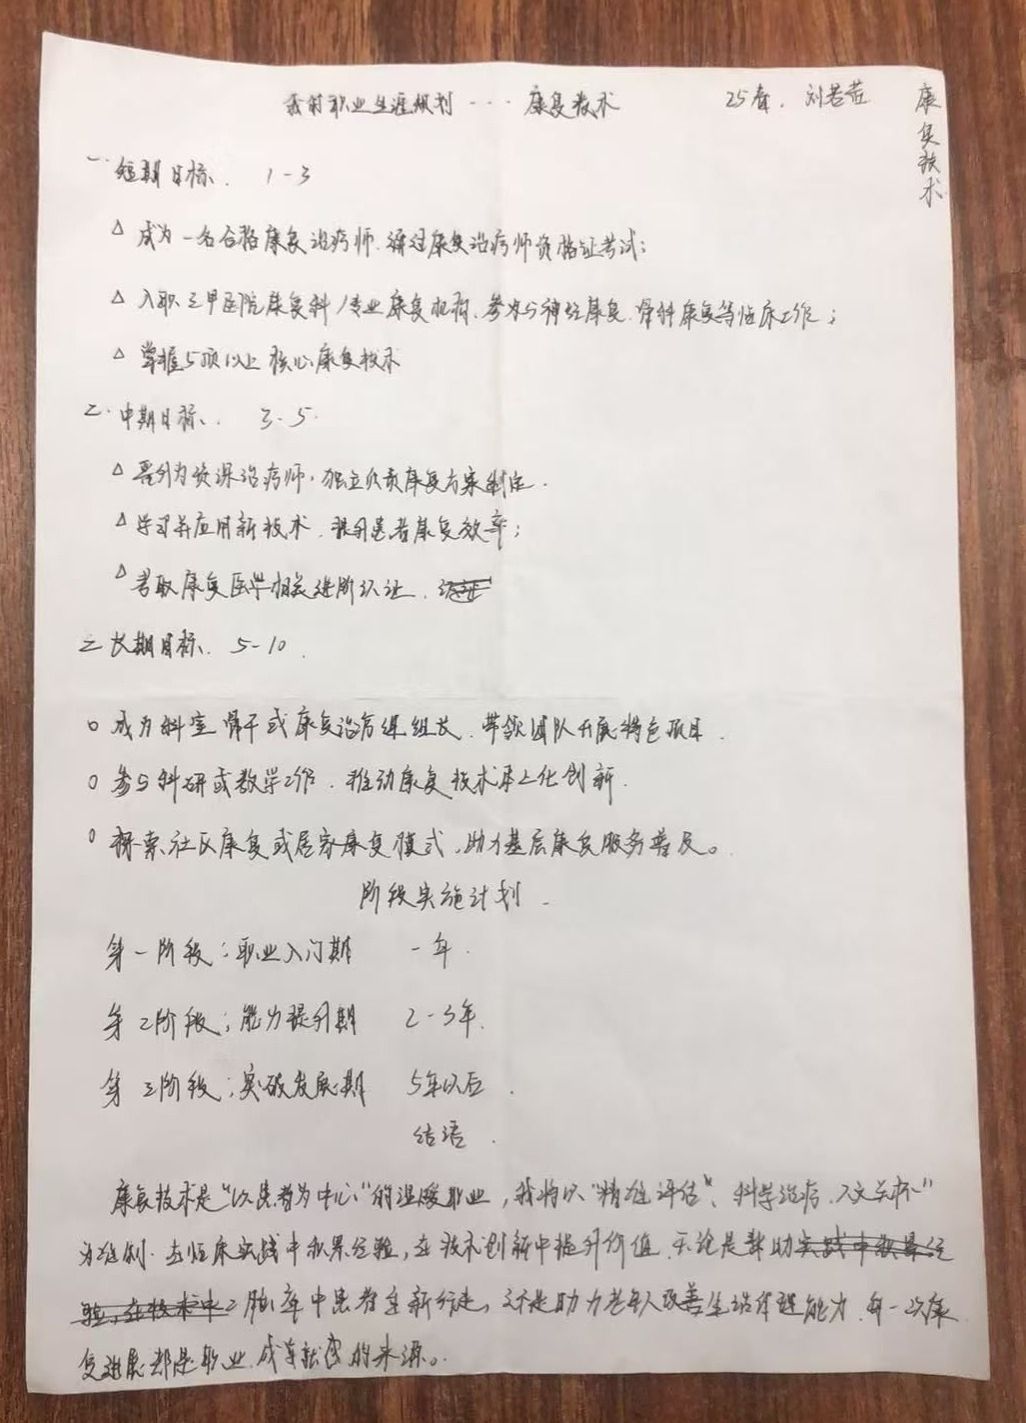 我的职业生涯规划 --- 康复技术
25春. 刘若芸
康复技术
一. 短期目标. 1-3
△ 成为一名合格康复治疗师.通过康复治疗师资格证考试;
△ 入职三甲医院康复科/专业康复机构、参与神经康复.骨科康复等临床工作;
△ 掌握5项以上核心康复技术
二. 中期目标. 3-5.
△ 晋升为资深治疗师.独立负责康复方案制定.
△ 学习并应用新技术.提升患者康复效率;
△ 考取康复医学相关进阶认证.
三 长期目标. 5-10.
○ 成为科室骨干或康复治疗组组长.带领团队开展特色项目.
○ 参与科研或教学工作.推动康复技术本土化创新.
○ 探索社区康复或居家康复模式.助力基层康复服务普及。
阶段实施计划
第一阶段:职业入门期 一年.
第二阶段;能力提升期 2-3年.
第三阶段;突破发展期 5年以后.
结语.
康复技术是“以患者为中心”的温暖职业,我将以“精准评估、科学治疗.人文关怀”
为准则.在临床实践中积累经验,在技术创新中提升价值.无论是帮助实践中积累经
验,在技术中 脑卒中患者重新行走,还是助力老年人改善生活 能力.每一次康
复进展都是职业.成就 的来源。